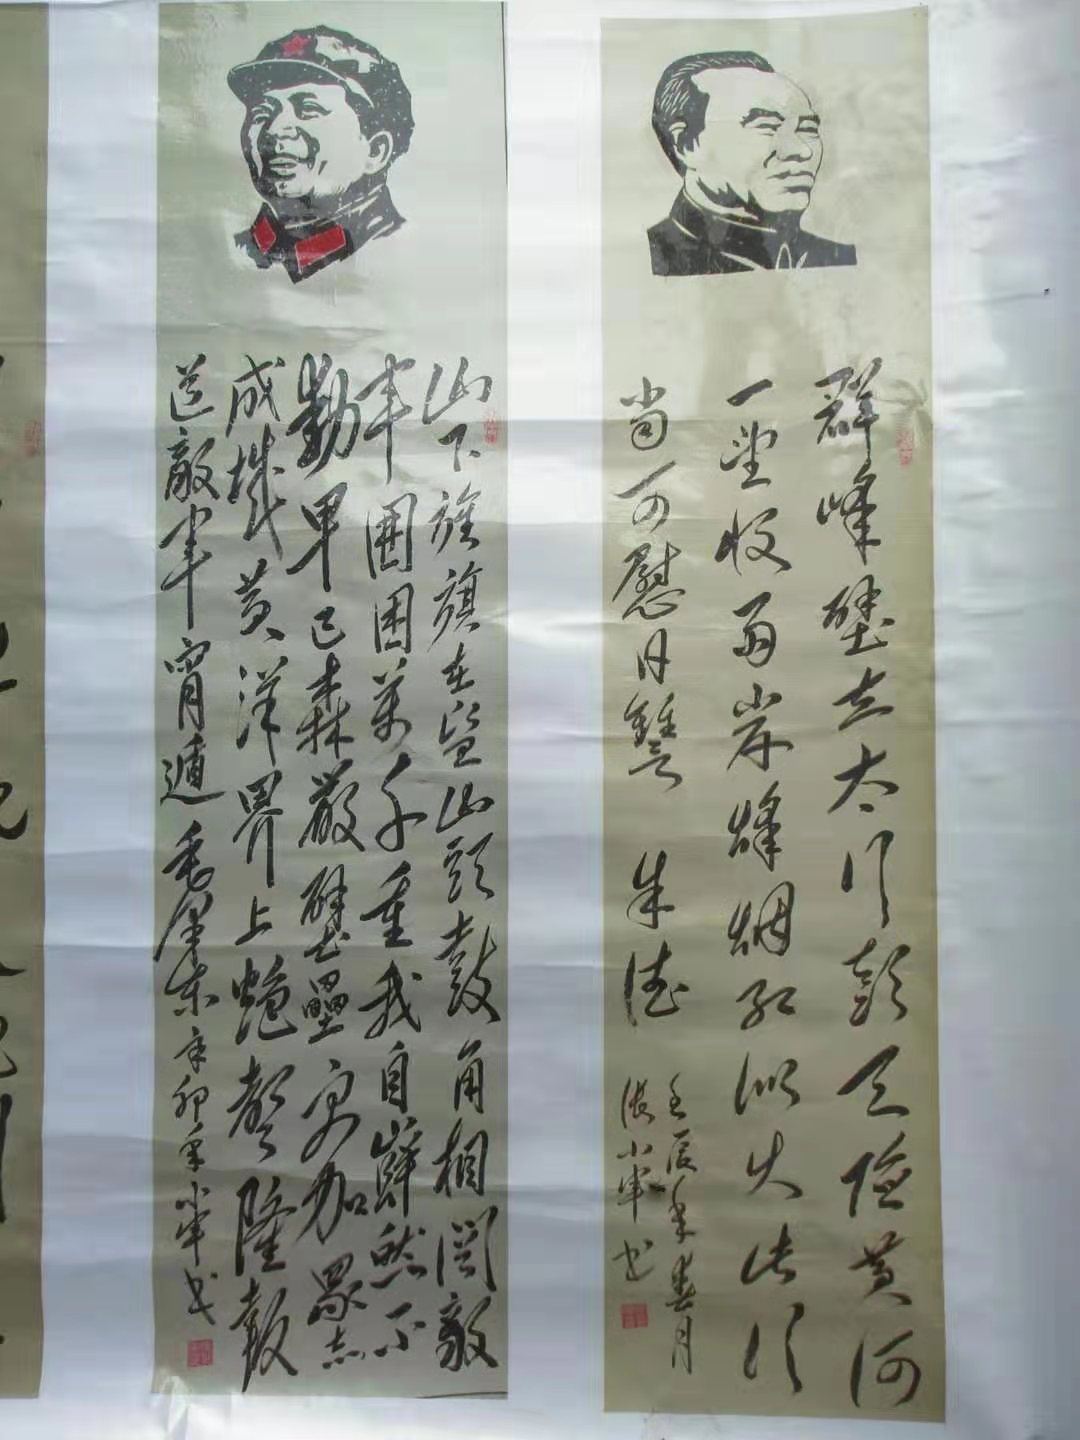 群峰壁立太行頭天险黄河
一望收两岸烽烟红似火此行
當可慰同讐 朱德
壬辰年春月
張小軍书
山下旌旗在望山頭鼓角相闻敵
军圍困萬千重我自巋然不
動早已森嚴壁壘更加眾志
成城黄洋界上炮聲隆報
道敵軍宵遁 毛泽东 辛卯年小军书